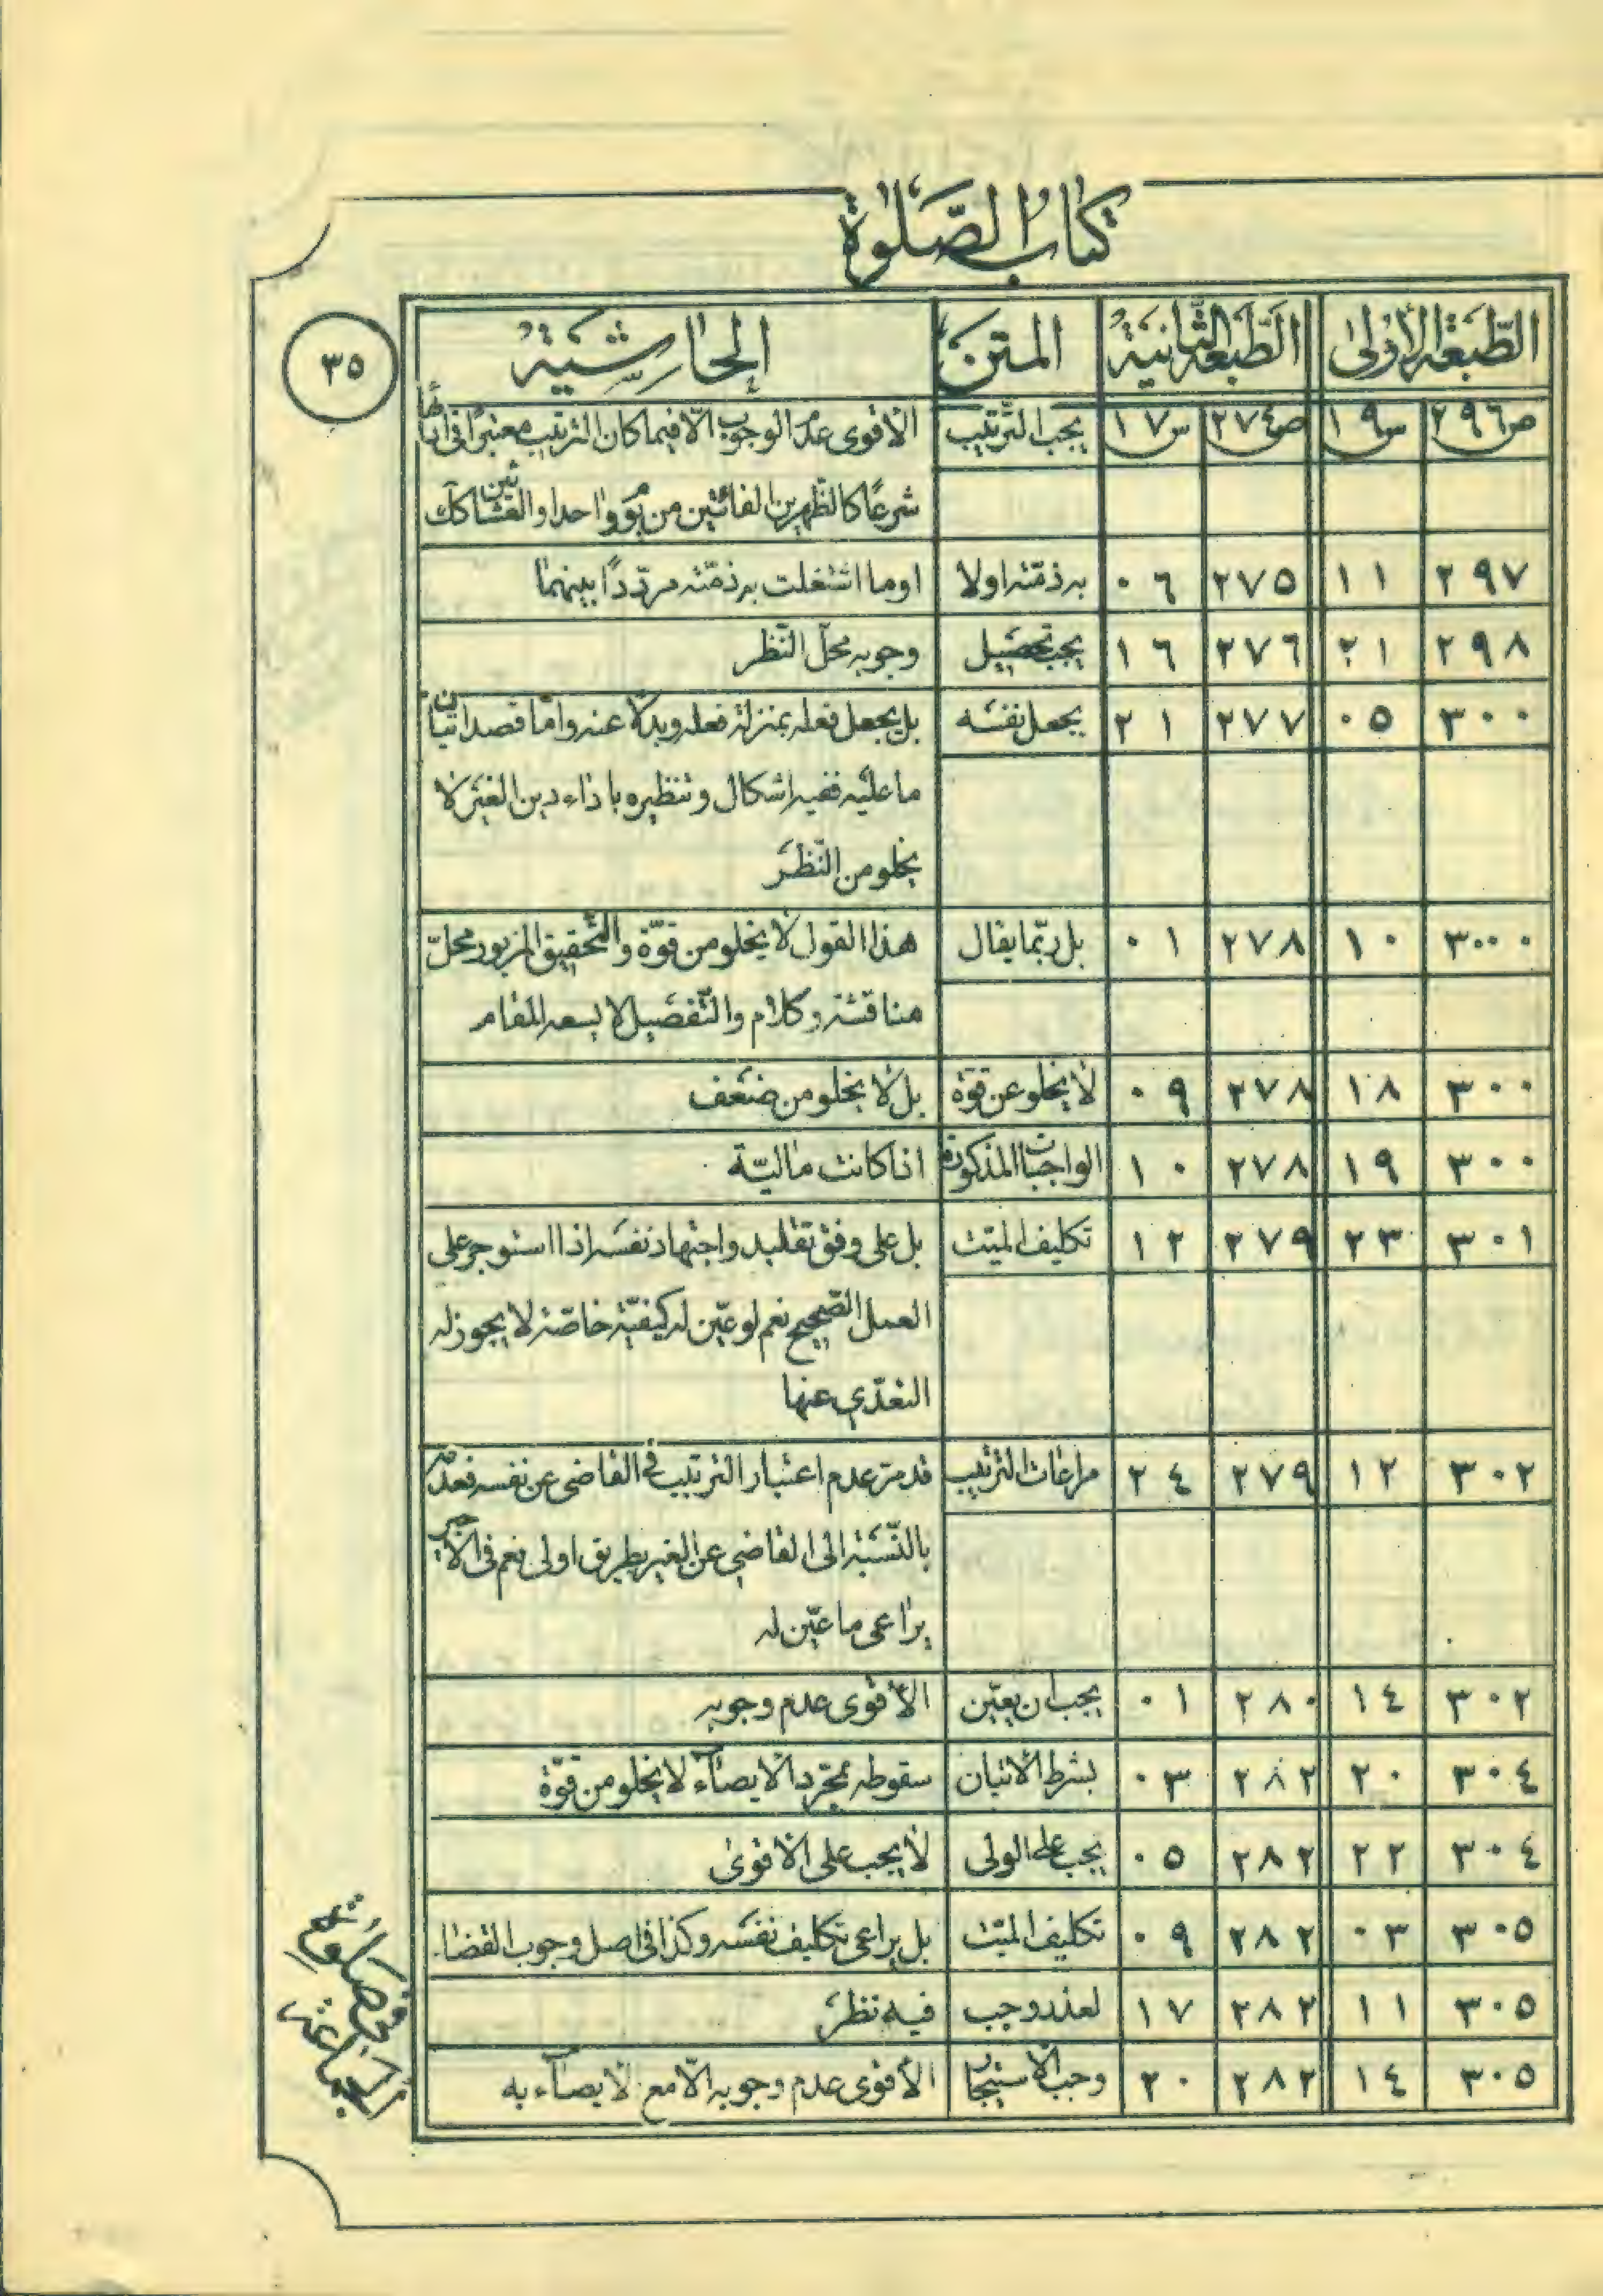 كتاب الصّلوة
٣٥
الطّبعة الأولى الطّبعة الثّانية المتن الحاشية
ص٢٩٦ س١٩ ص٢٧٤ س١٧ يجب التّرتيب الأقوى عدم الوجوب الّا فيما كان الترتيب معتبرًا في ادائها
شرعًا كالظّهرين الفائتين من يوم واحد او العشائين كك
٢٩٧ ١١ ٢٧٥ ٠٦ به ذمّته اولا او ما اشتغلت به ذمّته مردّدًا بينهما
٢٩٨ ٢١ ٢٧٦ ١٦ يجب تحصيل وجوبه محلّ النّظر
٣٠٠ ٠٥ ٢٧٧ ٢١ يجعل نفسه بل يجعل فعله بمنزلة فعله وبدلًا عنه وامّا قصد اتيان
ما عليه ففيه اشكال وتنظيره باداء دين الغير لا
يخلو من النّظر
٣٠٠ ١٠ ٢٧٨ ٠١ بل ربّما يقال هذا القول لا يخلو من قوّة والتّحقيق المزبور محلّ
مناقشة وكلام والتّفصيل لا يسعه المقام
٣٠٠ ١٨ ٢٧٨ ٠٩ لا يخلو عن قوّة بل لا يخلو من ضعف
٣٠٠ ١٩ ٢٧٨ ١٠ الواجبات المذكورة اذا كانت ماليّة
٣٠١ ٢٣ ٢٧٩ ١٢ تكليف الميّت بل على وفق تقليد واجتهاد نفسه اذا استوجر على
العمل الصّحيح نعم لو عيّن له كيفيّة خاصّة لا يجوز له
التعدّي عنها
٣٠٢ ١٢ ٢٧٩ ٢٤ مراعات الترتيب قد مرّ عدم اعتبار الترتيب في القاضى عن نفسه فعدمه
بالنّسبة الى القاضي عن الغير بطريق اولى نعم في الأجير
يراعى ما عيّن له
٣٠٢ ١٤ ٢٨٠ ٠١ يجب ان يعيّن الأقوى عدم وجوبه
٣٠٤ ٢٠ ٢٨٢ ٠٣ بشرط الاتيان سقوطه بمجرّد الايصآء لا يخلو من قوّة
٣٠٤ ٢٢ ٢٨٢ ٠٥ يجب على الولى لا يجب على الاقوى
٣٠٥ ٠٣ ٢٨٢ ٠٩ تكليف الميّت بل يراعى تكليف نفسه وكذا في اصل وجوب القضاء
٣٠٥ ١١ ٢٨٢ ١٧ لعذر وجب فيه نظر
٣٠٥ ١٤ ٢٨٢ ٢٠ وجب الاستيجار الأقوى عدم وجوبه الّا مع الايصآء به
الجماعة